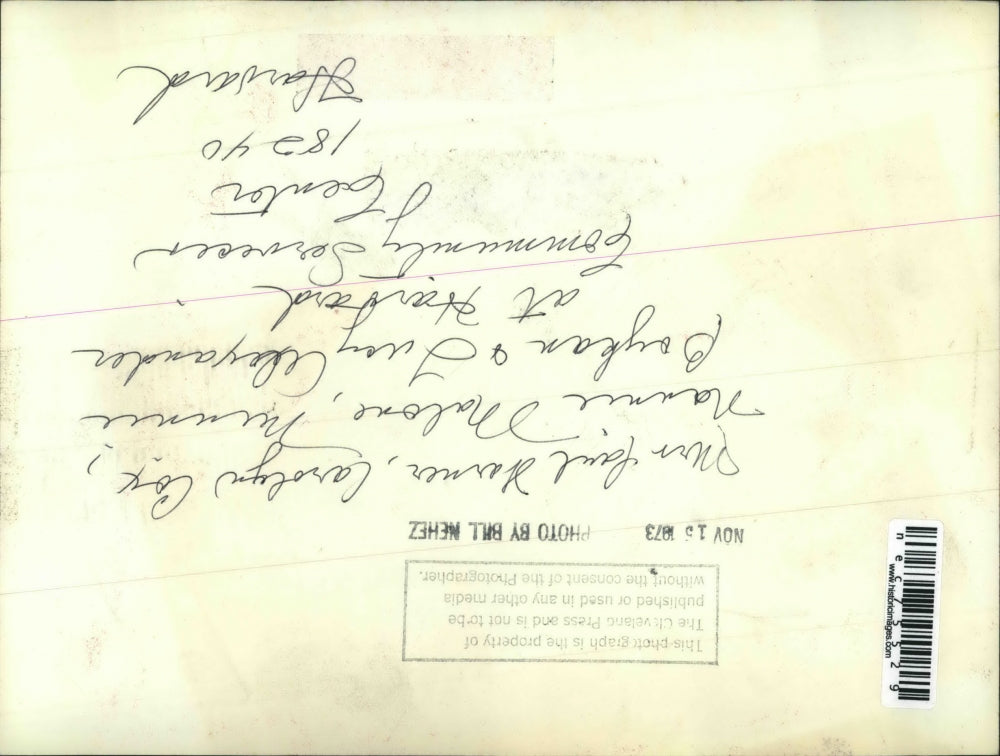 This photograph is the property of
The Cleveland Press and is not to be
published or used in any other media
without the consent of the Photographer.
NOV 15 1973 PHOTO BY BILL NEHEZ
Mrs. Paul Harner, Carolyn Cox,
Nannie Malone, Minnie
Boykan & Lucy Alexander
at Harvard
Community Services
Center
18240
Harvard
necl75529
www.historicimages.com